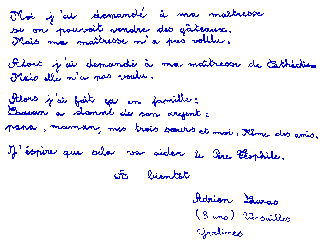 Moi j'ai demandé à ma maîtresse
si on pouvait vendre des gâteaux.
Mais ma maîtresse n'a pas voulu.
Alors j'ai demandé à ma maîtresse de
Mais elle n'a pas voulu.
Alors j'ai fait ça en famille :
a donné de son argent :
papa, maman, mes trois sœurs et moi. Même des amis.
J'éspère que cela va aider le Père Théophile.
A bientôt
Adrien
(8 ans)